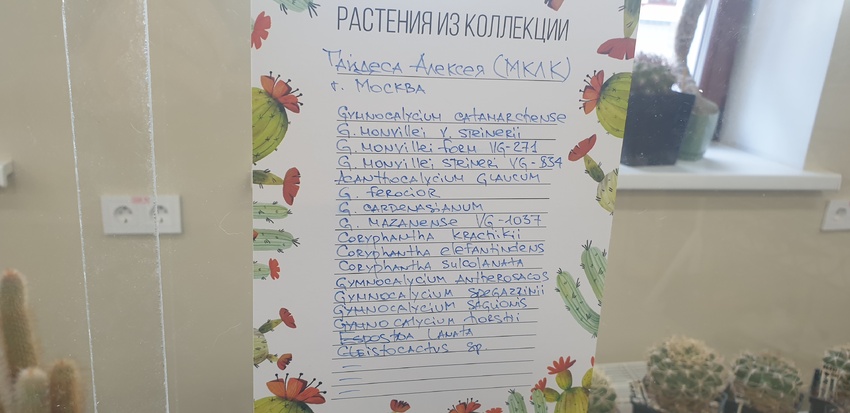 РАСТЕНИЯ ИЗ КОЛЛЕКЦИИ
Тайдеса Алексея (МКЛК)
г. Москва
Gymnocalycium catamarchense
G. monvillei v. steinerii
G. monvillei form VG-271
G. monvillei steineri VG-834
Acanthocalycium glaucum
G. ferocior
G. cardenasianum
G. mazanense VG-1037
Coryphantha krachikii
Coryphantha elefantindens
Coryphantha sulcolanata
Gymnocalycium antherosacos
Gymnocalycium spegazzinii
Gymnocalycium saglionis
Gymnocalycium horstii
Espostoa lanata
Cleistocactus sp.